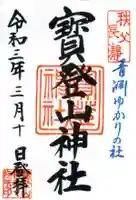 秩父
長瀞
青淵ゆかりの社
寳登山神社
令和三年三月十日登拝